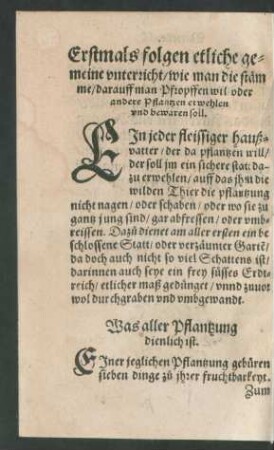 Erstmals folgen etliche ge-
meine vnterricht/wie man die stäm
me/darauff man Pfropffen wil oder
andere Pflantzen erwehlen
vnd bewaren soll.
EIn jeder fleissiger hauß-
vatter/der da pflantzen will/
der soll jm ein sichere stat da-
zu erwehlen/auff das jhn die
wilden Thier die pflantzung
nicht nagen/oder schaben/oder wo sie zu
gantz jung sind/gar abfressen/oder vmb-
reissen. Dazů dienet am aller ersten ein be
schlossene Statt/oder verzäumter Gartē/
da doch auch nicht so viel Schattens ist/
darinnen auch seye ein frey süsses Erdt-
reich/etlicher maß gedünget/vnnd zuuot
wol durchgraben vnd vmbgewandt.
Was aller Pflantzung
dienlich ist.
EIner jeglichen Pflantzung gebüren
sieben dinge zů jhrer fruchtbarkeyt.
Zum